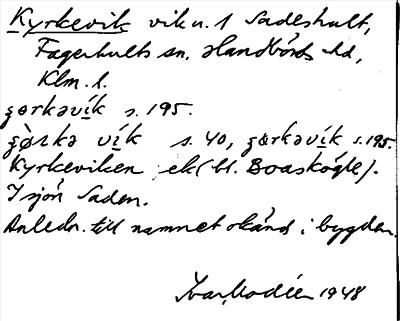 Kyrkevik vik u. 1 Sadeshult,
Fagerhults sn. Handbörds hd,
Klm. l.
ʒɵrkəvík s. 195.
ʒø̀rkə vík s. 40, ʒɵrkəvík s. 195.
Kyrkeviken ek (bl. Boaskögle).
I sjön Saden.
Anledn. till namnet okänd i bygden.
Ivar Modéer 1948